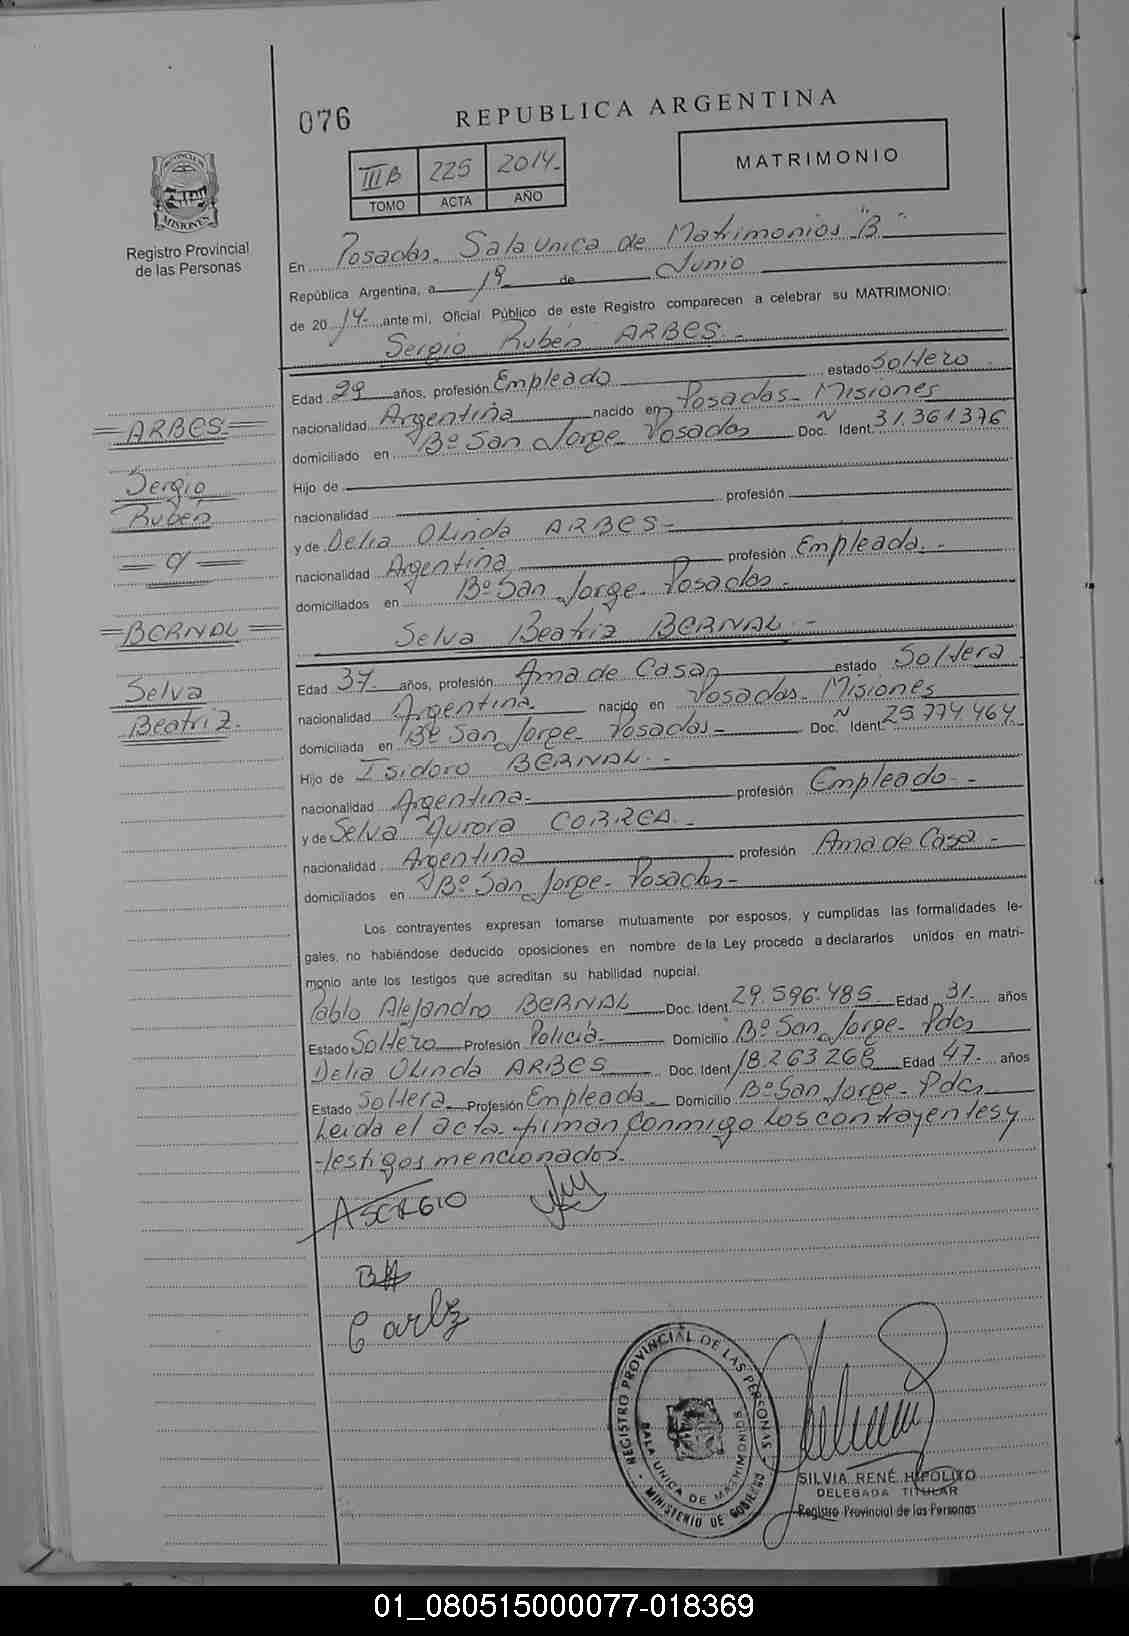 076
REPUBLICA ARGENTINA
III B 225 2014.-
TOMO ACTA AÑO
MATRIMONIO
PROVINCIA DE
MISIONES
Registro Provincial
de las Personas
En Posadas. Sala Unica de Matrimonios "B"
República Argentina, a 19 de Junio
de 2014.- ante mi, Oficial Público de este Registro comparecen a celebrar su MATRIMONIO:
Sergio Rubén ARBES.-
Edad 29 años, profesión Empleado estado Soltero
nacionalidad Argentina nacido en Posadas- Misiones
domiciliado en Bº San Jorge- Posadas Doc. Ident. Nº 31.361376
Hijo de
nacionalidad profesión
y de Delia Olinda ARBES-
nacionalidad Argentina profesión Empleada.-
domiciliados en Bº San Jorge- Posadas-
Selva Beatriz BERNAL.-
Edad 37.- años, profesión Ama de Casa estado Soltera
nacionalidad Argentina. nacido en Posadas- Misiones
domiciliada en Bº San Jorge- Posadas- Doc. Ident. Nº 25.774.464
Hijo de Isidoro BERNAL.-
nacionalidad Argentina- profesión Empleado.-
y de Selva Aurora CORREA.-
nacionalidad Argentina profesión Ama de Casa-
domiciliados en Bº San Jorge- Posadas-
Los contrayentes expresan tomarse mutuamente por esposos, y cumplidas las formalidades le-
gales, no habiéndose deducido oposiciones en nombre de la Ley procedo a declararlos unidos en matri-
monio ante los testigos que acreditan su habilidad nupcial.
Pablo Alejandro BERNAL Doc. Ident. 29.596.485 Edad 31.- años
Estado Soltero Profesión Policía- Domicilio Bº San Jorge- Pdas
Delia Olinda ARBES Doc. Ident. 18.263268 Edad 47.- años
Estado Soltera Profesión Empleada.- Domicilio Bº San Jorge- Pdas
Leída el acta firman conmigo los contrayentes y
testigos mencionados.
=ARBES=
Sergio
Rubén
BERNAL
Selva
Beatriz.
A SERGIO
REGISTRO PROVINCIAL DE LAS PERSONAS
SALA UNICA DE MATRIMONIOS
MINISTERIO DE GOBIERNO
SILVIA RENÉ HIPOLITO
DELEGADA TITULAR
Registro Provincial de las Personas
01_080515000077-018369